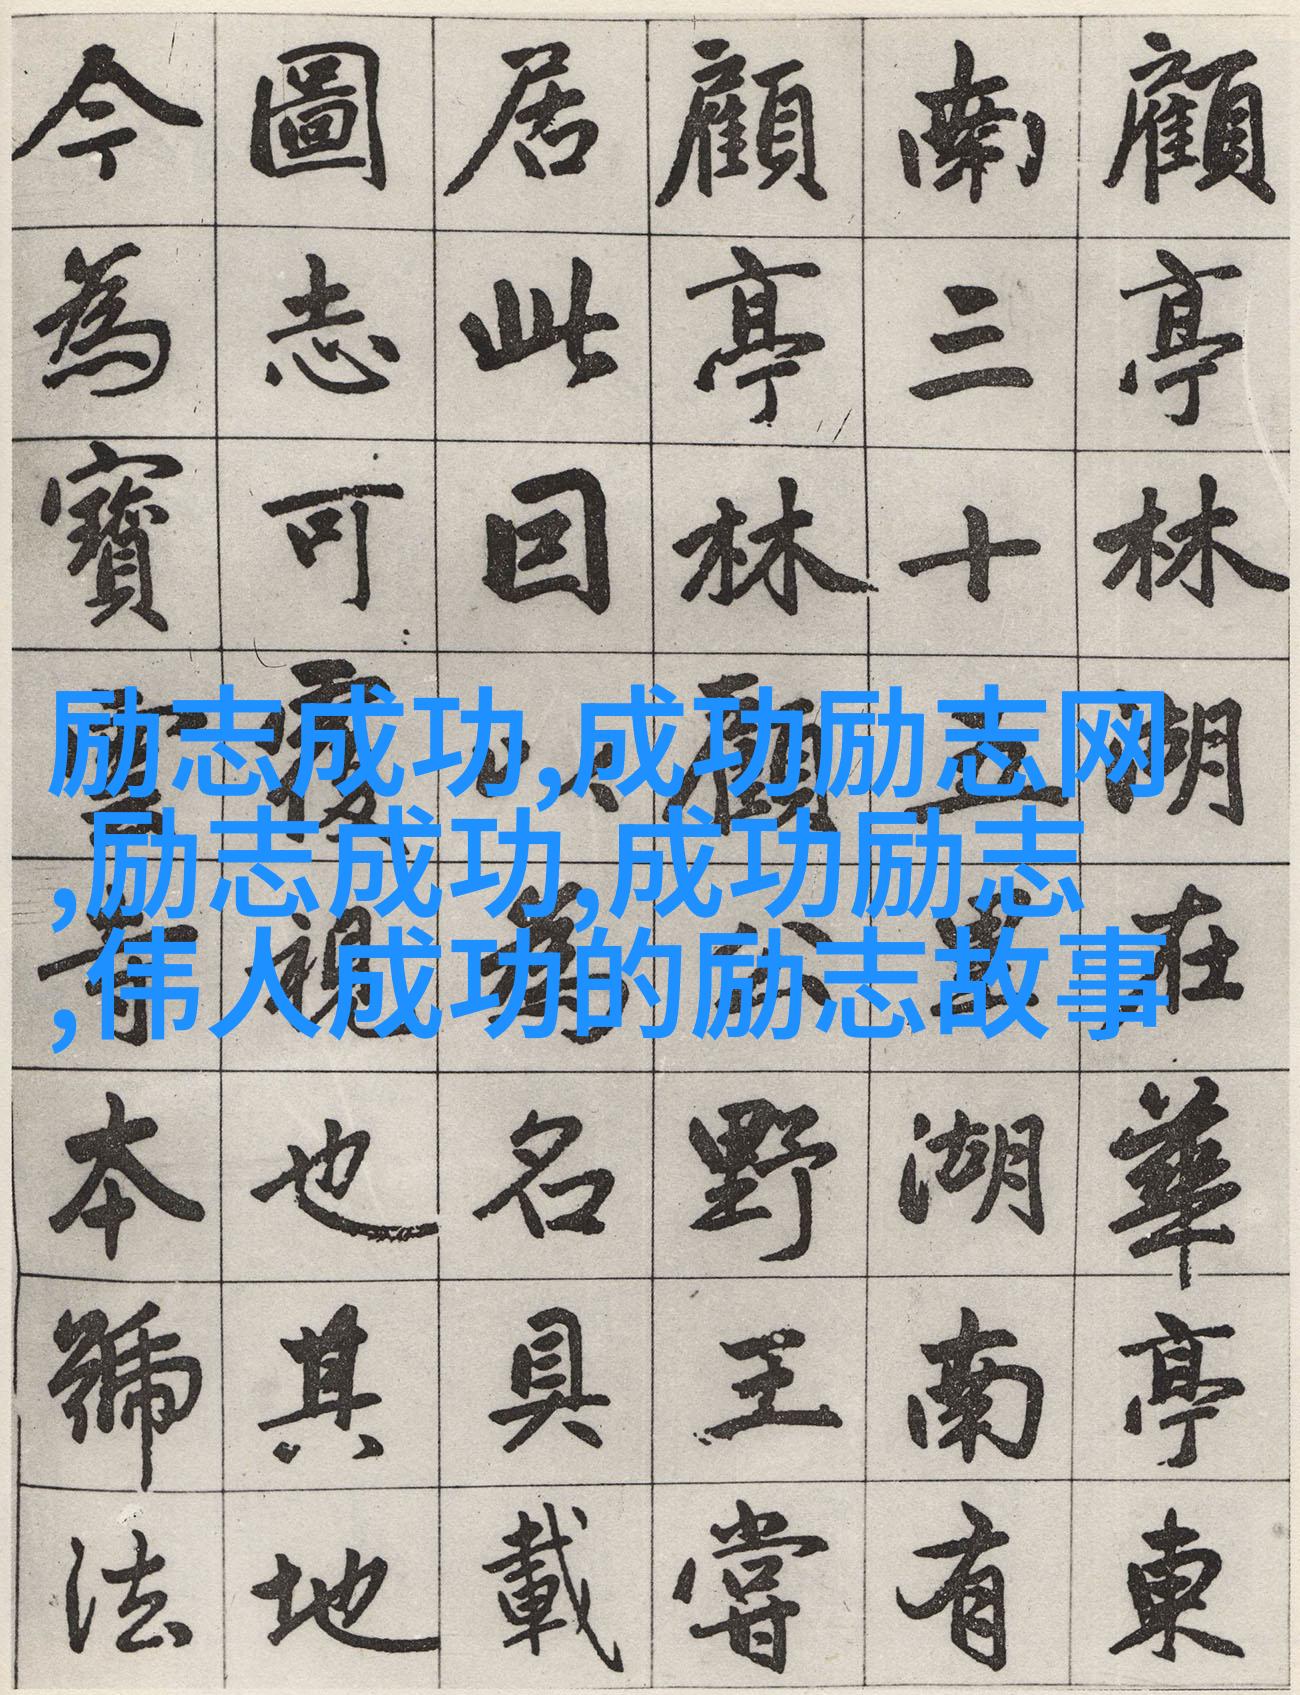 顧亭林湖在華亭東
南三十五里湖南有
顧亭林顧公野王嘗
居此因以為名具載
圖志可覆視也其地
今為寶雲寺本號法
励志成功,成功励志网
,励志成功,成功励志
,伟人成功的励志故事